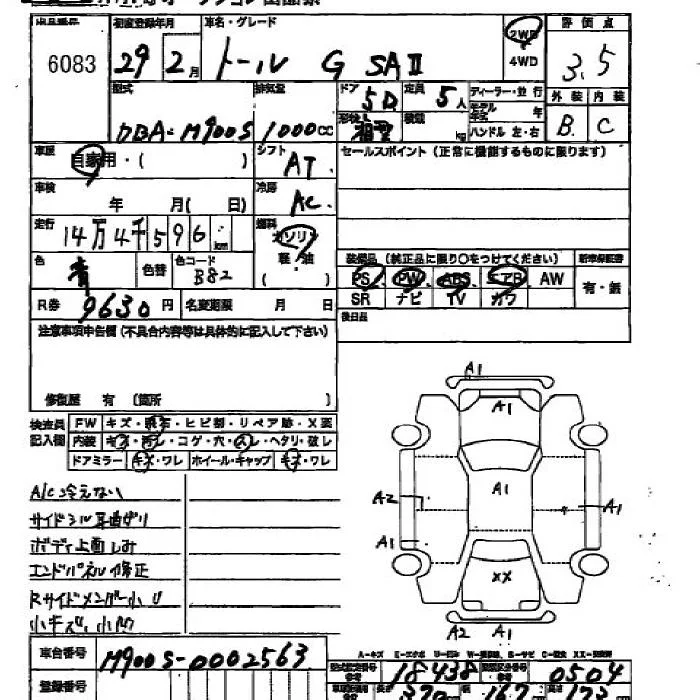 出品番号 初度登録年月 車名・グレード 評価点
6083 29年 2月 トール G SAⅡ 2WD 4WD 3.5
型式 排気量 ドア 定員 ディーラー・並行 外装 内装
DBA-M900S 1000cc 5D 5人 モデル 年 B C
形状 積載 kg ハンドル 左・右
車歴 自家用・( ) シフト AT セールスポイント (正常に機能するものに限ります)
車検 年 月( 日) 冷房 AC
走行 14万4千596km 燃料 ガソリン
軽・油
装備品 (純正品に限り○をつけてください) 新車保証書
色 青 色替 色コード B82 ( ) PS PW ABS エアB AW 有・紙
R券 9630円 名変期限 月 日 SR ナビ TV カワ
注意事項申告欄 (不具合内容等は具体的に記入して下さい) 後日品
修復歴 有 〔箇所 〕
検査員記入欄 FW キズ・飛石・ヒビ割・リペア跡・X要
内装 キズ・汚レ・コゲ・穴・スレ・ヘタリ・破レ
ドアミラー キズ・ワレ ホイール・キャップ キズ・ワレ
A1
A1
A/C冷えない
A1
A2
A1
サイドシル耳曲がり
ボディ上面しみ
A1
エンドパネル修正
XX
Rサイドメンバー小
小キズ、小凹
A2 A1
A=キズ E=エクボ U=凹ミ S=サビ C=腐食 XX=交換済
車台番号 M900S-0002563 型式指定番号 18438 類別区分番号 0504
登録番号 長さ 370 幅 167 高さ 173